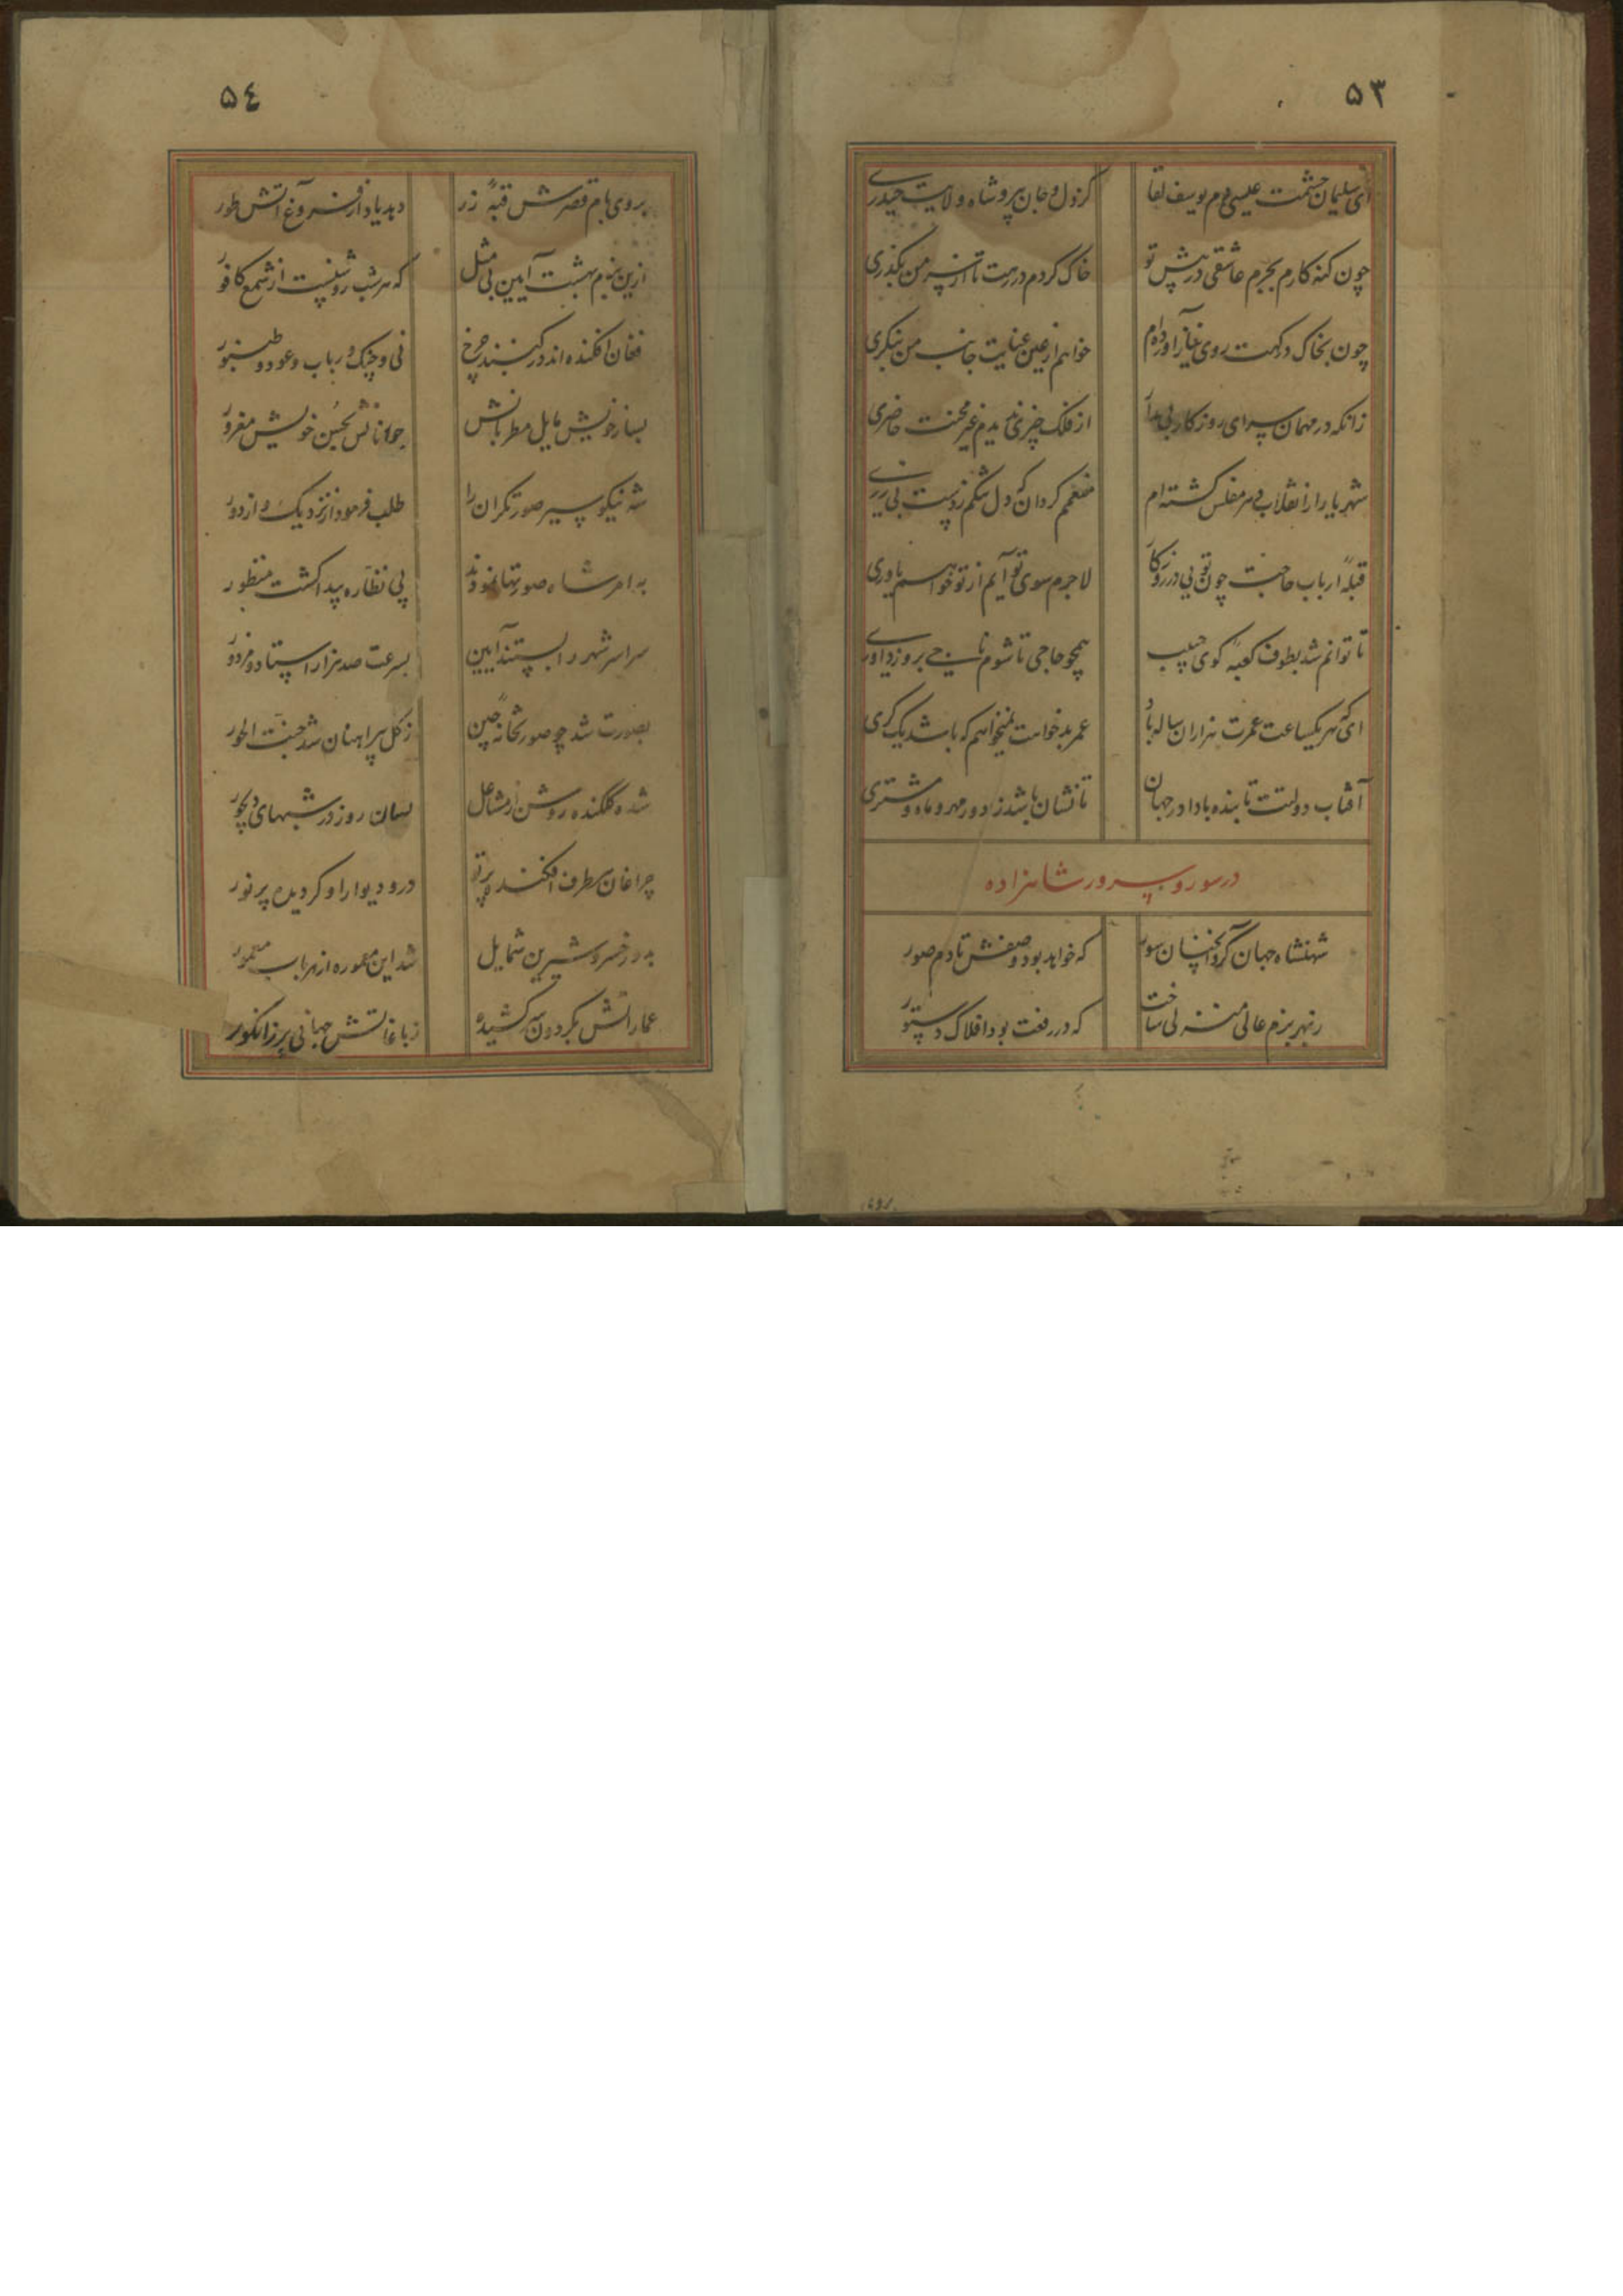 ۵۳
ای سلیمان حشمت عیسی دم یوسف لقا کز دل و جان پیرو شاه ولایت حیدری
چون کنه کارم بجرم عاشقی در پیش تو خاک کردم در رهت تا از سر من بکذری
چون بخاک درکهت روی نیاز آورده‌ام خواهم از عین عنایت جانب من بنکری
زانکه در مهمان سرای روزکار بی مدار از فلک چیزی ندیدم غیر محنت حاضری
شهریارا ز انقلاب دهر مفلس کشته‌ام منعمم کردان که دل تنکم ز دست بی زری
قبلهٔ ارباب حاجت چون تویی در روزکار لاجرم سوی تو آیم از تو خواهم یاوری
تا توانم شد بطوف کعبهٔ کوی حبیب همچو حاجی تا شوم ناجی بروز داوری
ای که هر یکساعت عمرت هزاران ساله باد عمر بدخواهت نمیخواهم که باشد یک کری
آفتاب دولتت تابنده بادا در جهان تا نشان باشد ز دور مهر و ماه و مشتری
در سور و سرور شاهزاده
شهنشاه جهان کرد آنچنان سور که خواهد بود وصفش تا دم صور
ز بهر بزم عالی منزلی ساخت که در رفعت بود افلاک دستور
۵٤
بروی بام قصرش قبهٔ زر دهد یاد از فروغ آتش طور
ازین بزم بهشت آیین بی مثل که هر شب روشنست از شمع کافور
فغان افکنده‌اند در کنبد چرخ نی و چنک و رباب و عود و طنبور
بساز خویش مایل مطربانش جوانانش بحسن خویش مغرور
شه نیکو سیر صورتکران را طلب فرمود از نزدیک و از دور
به امر شاه صورتها نمودند پی نظاره پیدا کشت منظور
سراسر شهر را بستند آیین بسرعت صد هزار استاد و مزدور
بصورت شد چو صورتخانهٔ چین ز کل پیراهنان شد جنت الحور
شده کلکنده روشن از مشاعل بسان روز در شبهای دیجور
چراغان هر طرف افکنده پرتو در و دیوار او کردیده پر نور
بدور خسرو شیرین شمایل شد این معموره از هر باب معمور
عماراتش بکردون سر کشیده ز باغاتش جهانی پر ز انکور